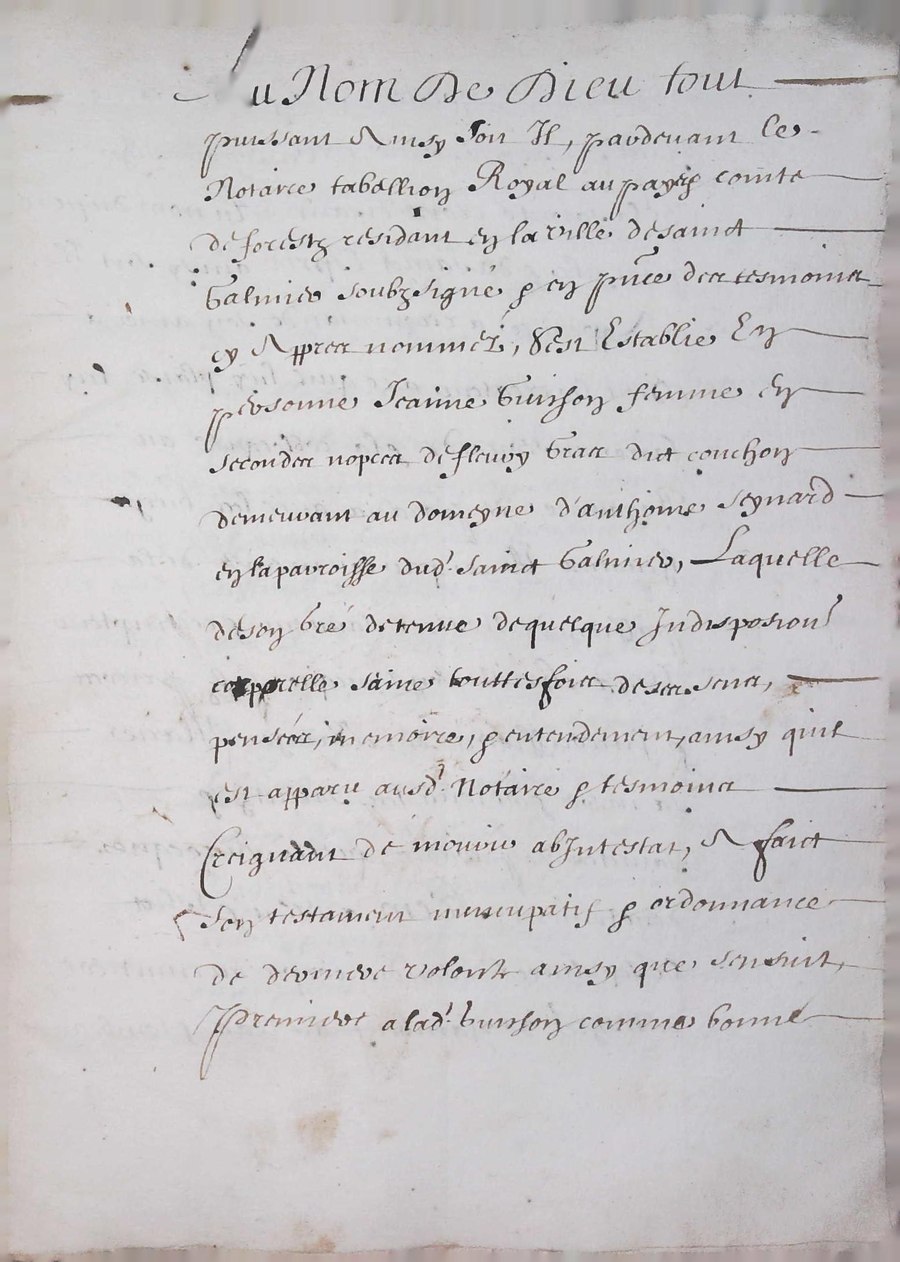 Au Nom De Dieu tout
puissant Ainsy soit Il, pardevant le
Notaire tabellion Royal au pays & comte
de forestz residant en la ville de sainct
Galmier soubzsigné & en pnce des tesmoins
cy Appres nommez, S'est Establie En
personne Jeanne Guinson femme en
secondes nopces de fleury Gras dict couchon
demeurant au domeyne d'anthoine Seynard
en la parroisse dud. sainct Galmier, Laquelle
de son Gré detenue de quelque Indisposion
corporelle saine touttesfois de ses sens,
pensées, memoire, & entendement, ainsy quil
est apparu ausd. Notaire & tesmoins
Creignant de mourir abIntestat, A faict
son testament nuncupatif & ordonnance
de derniere volonte ainsy que sensuit,
Premiere a lad. Guinson comme bonne